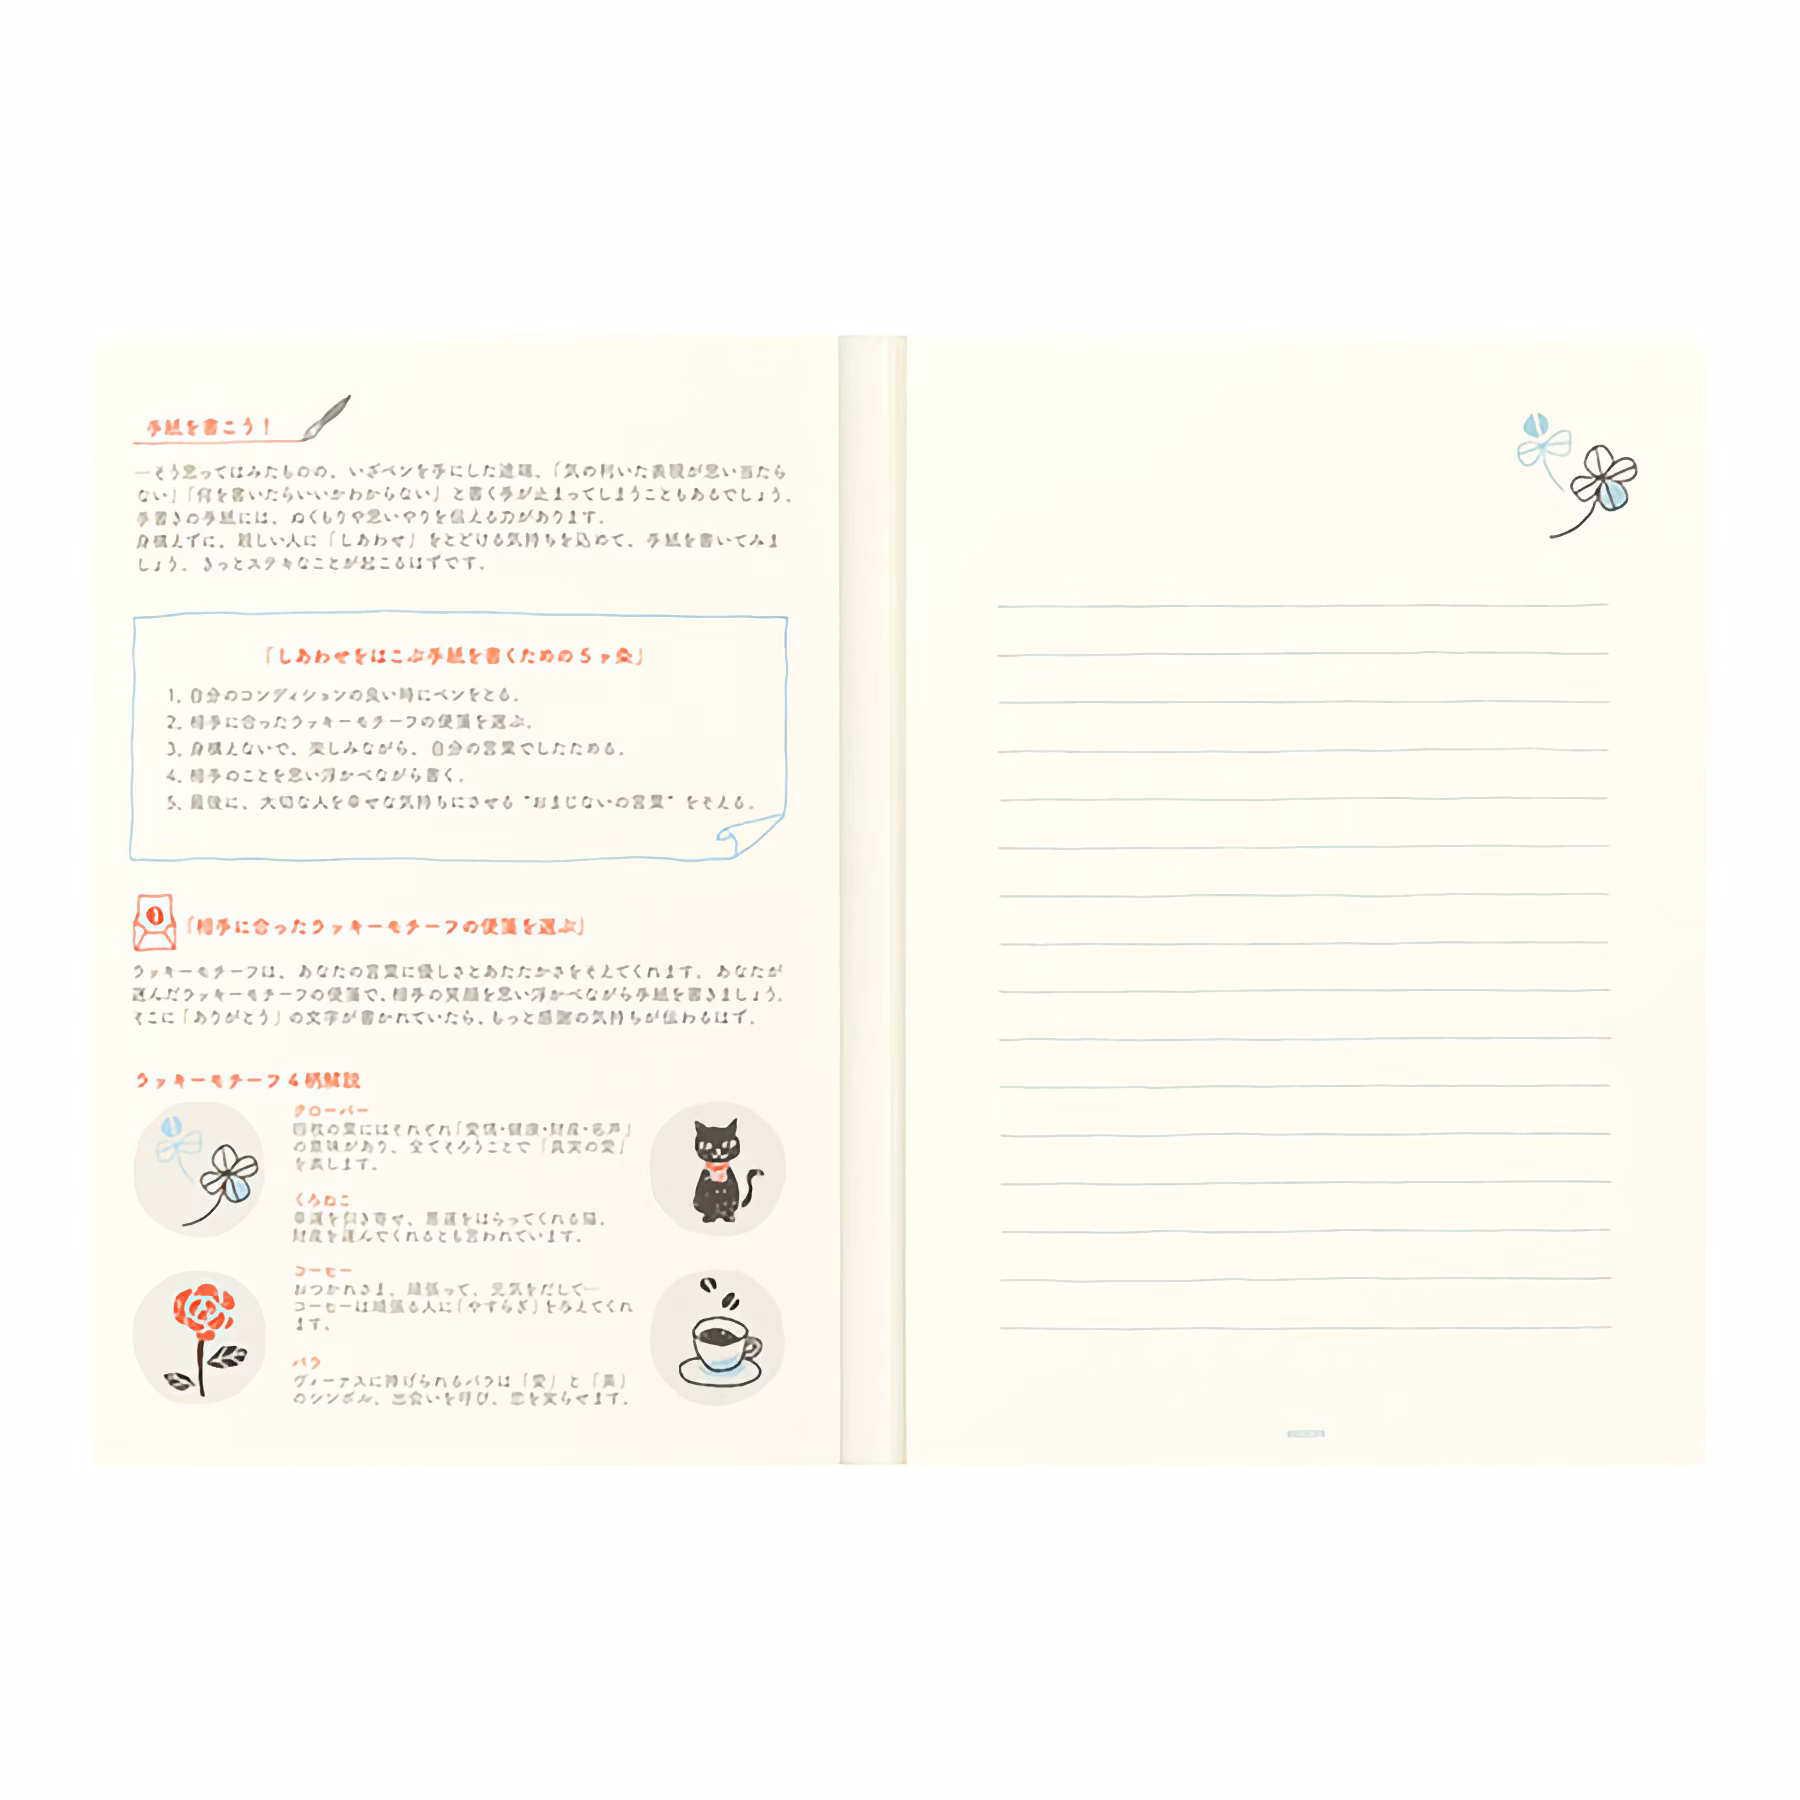 手紙を書こう！
―そう思ってはみたものの、いざペンを手にした途端、「気の利いた表現が思い当たら
ない」「何を書いたらいいかわからない」と書く手が止まってしまうこともあるでしょう。
手書きの手紙には、ぬくもりや思いやりを伝える力があります。
身構えずに、親しい人に「しあわせ」をとどける気持ちを込めて、手紙を書いてみま
しょう。きっとステキなことが起こるはずです。
「しあわせをはこぶ手紙を書くための5ヶ条」
1. 自分のコンディションの良い時にペンをとる。
2. 相手に合ったラッキーモチーフの便箋を選ぶ。
3. 身構えないで、楽しみながら、自分の言葉でしたためる。
4. 相手のことを思い浮かべながら書く。
5. 最後に、大切な人を幸せな気持ちにさせる“おまじないの言葉”をそえる。
「相手に合ったラッキーモチーフの便箋を選ぶ」
ラッキーモチーフは、あなたの言葉に優しさとあたたかさをそえてくれます。あなたが
選んだラッキーモチーフの便箋で、相手の笑顔を思い浮かべながら手紙を書きましょう。
そこに「ありがとう」の文字が書かれていたら、もっと感謝の気持ちが伝わるはず。
ラッキーモチーフ4柄解説
クローバー
四枚の葉にはそれぞれ「愛情・健康・財産・名声」
の意味があり、全てそろうことで「真実の愛」
を表します。
くろねこ
幸運を引き寄せ、悪運をはらってくれる猫。
財産を運んでくれるとも言われています。
コーヒー
おつかれさま、頑張って、元気をだして―
コーヒーは頑張る人に「やすらぎ」を与えてくれ
ます。
バラ
ヴィーナスに捧げられるバラは「愛」と「美」
のシンボル。出会いを呼び、恋を実らせます。